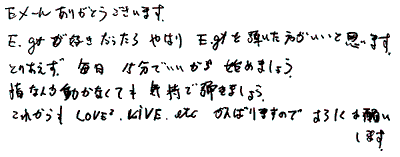 Eメールありがとうございます。
E.gtが好きだったらやはりE.gtを弾いた方がいいと思います。
とりあえず毎日15分でいいから始めましょう。
指なんか動かなくても気持で弾きましょう。
これからもLOVE²、LIVE、etcがんばりますのでよろしくお願い
します